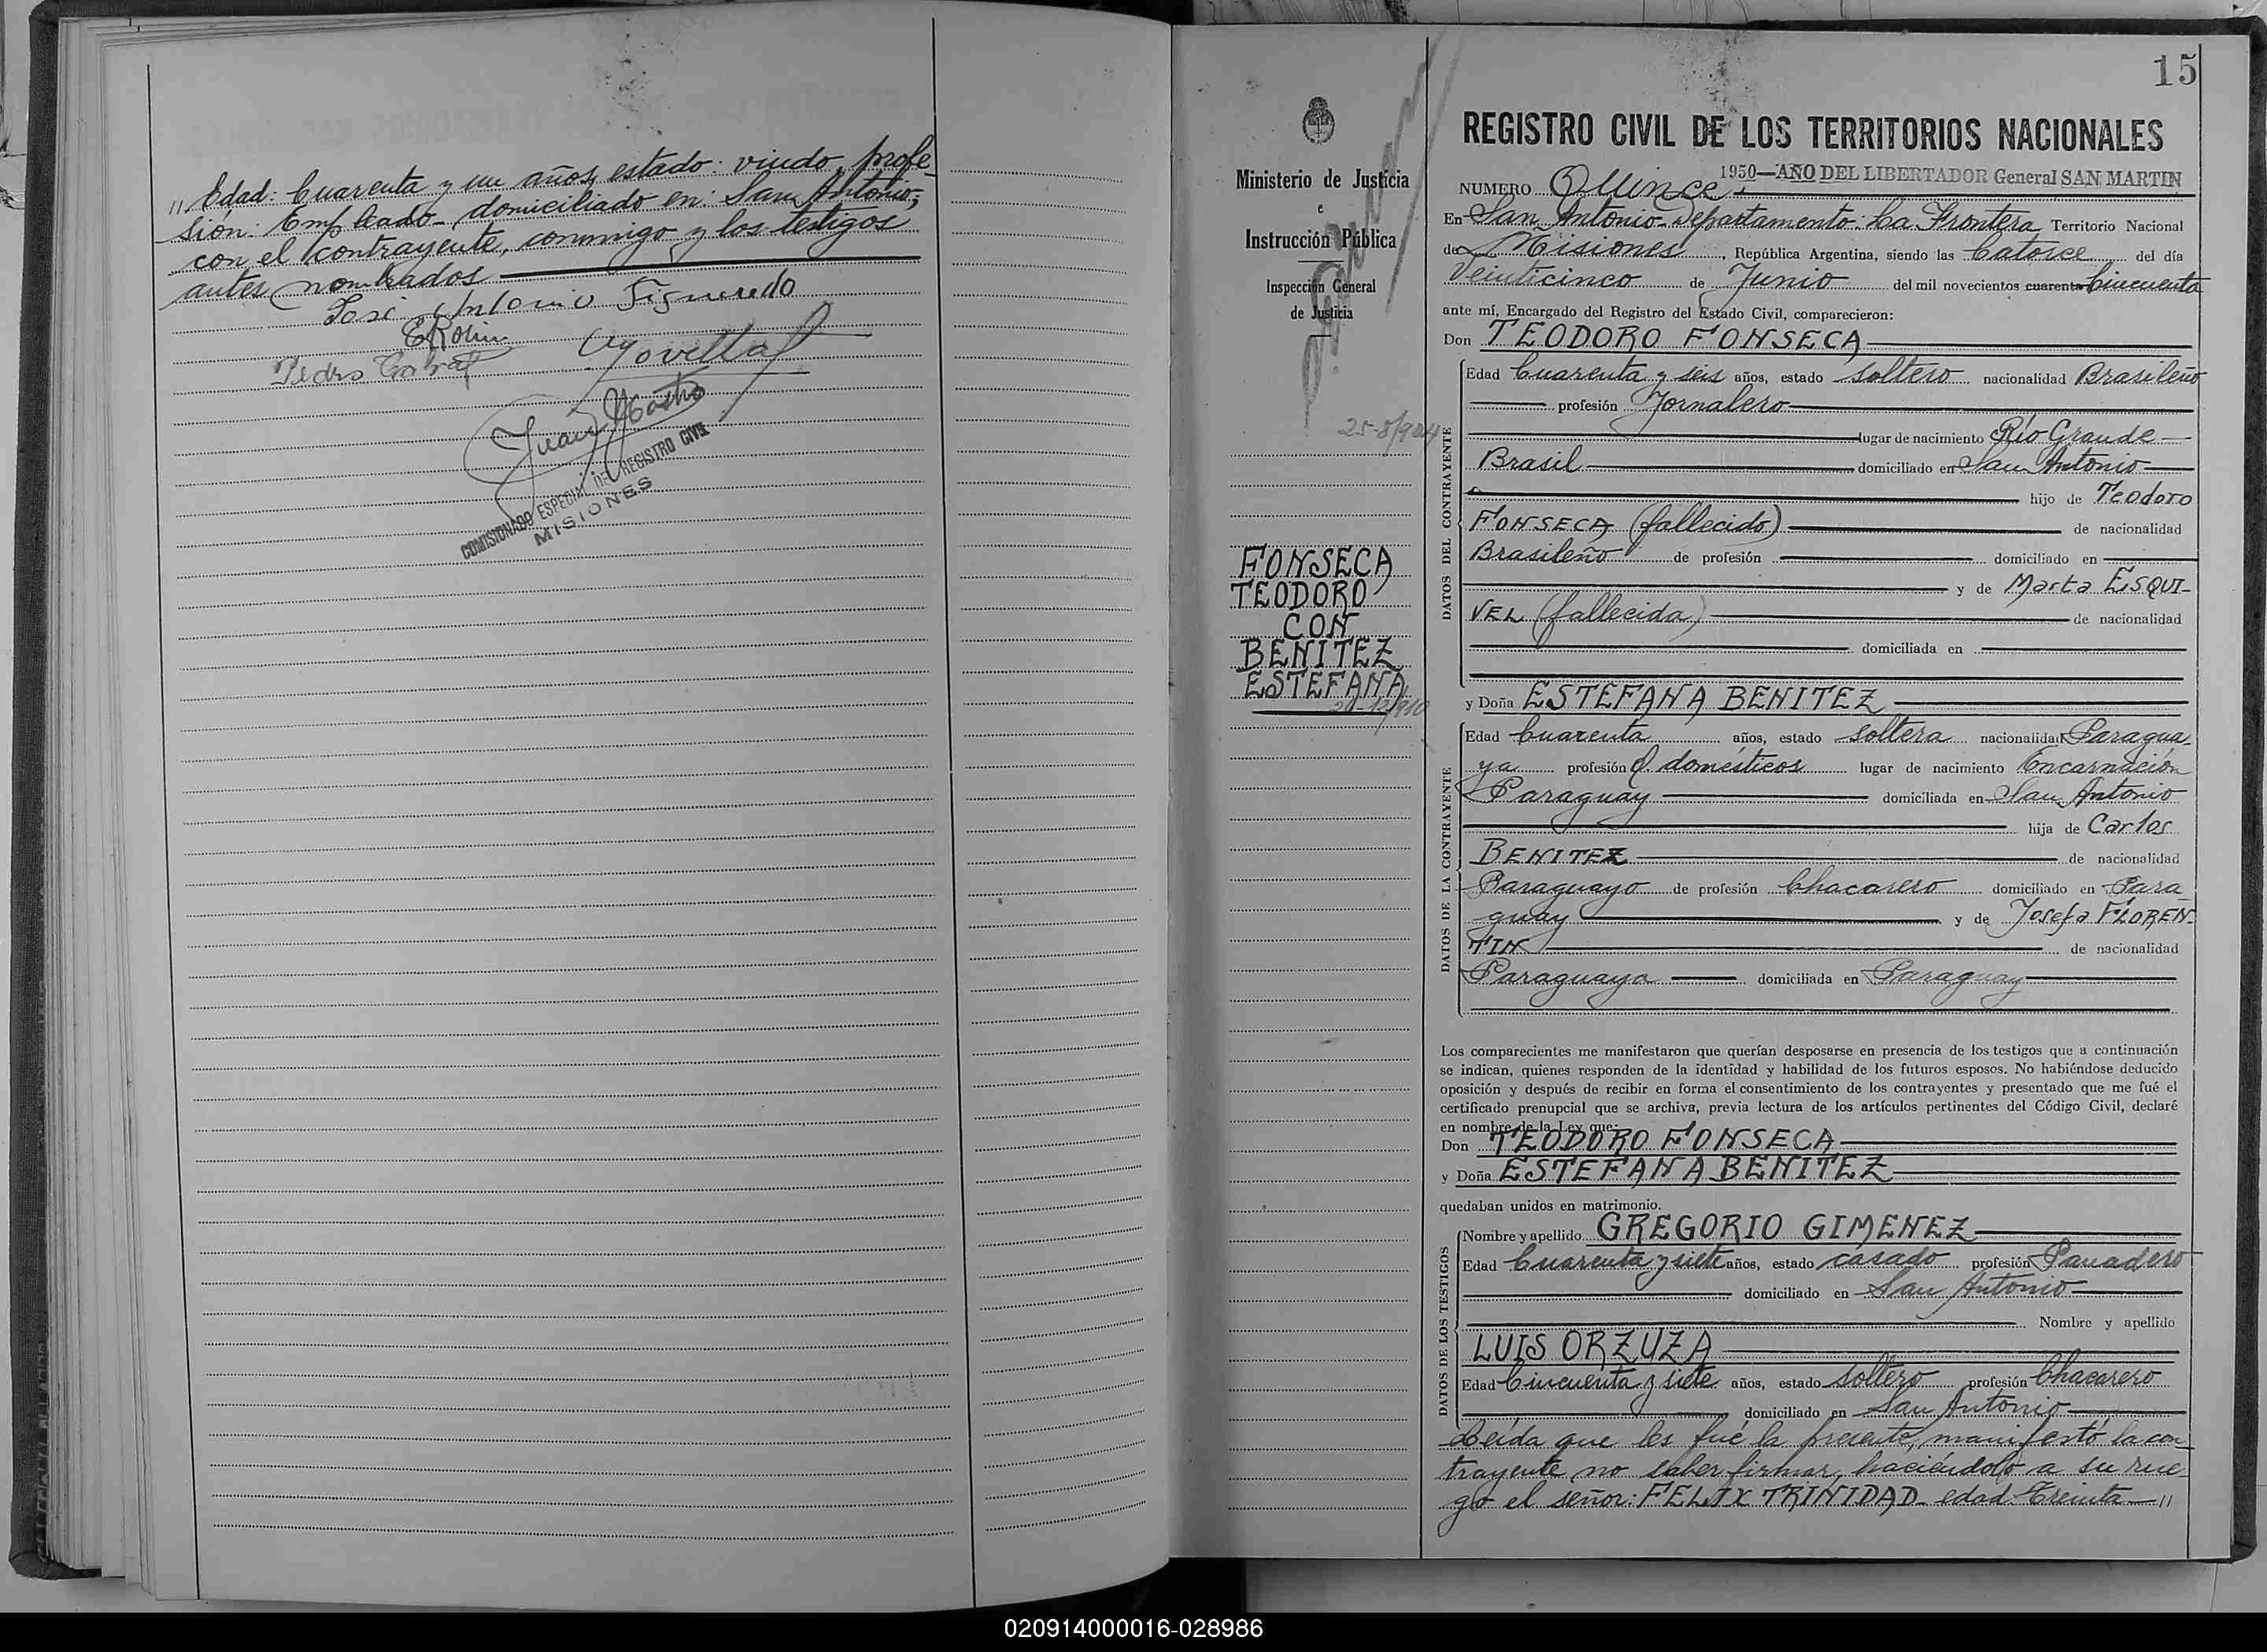 " Edad: Cuarenta y un años, estado: viudo, profe-
sión: Empleado - domiciliado en: San Antonio;
con el contrayente, conmigo y los testigos
antes nombrados
José Antonio Figueredo
Pedro Cabral
Juan
COMISIONADO ESPECIAL DEL REGISTRO CIVIL
MISIONES
Ministerio de Justicia
e
Instrucción Pública
Inspección General
de Justicia
25-8/904
FONSECA
TEODORO
CON
BENITEZ
ESTEFANA
26-12/910
15
REGISTRO CIVIL DE LOS TERRITORIOS NACIONALES
1950—AÑO DEL LIBERTADOR General SAN MARTIN
NUMERO Quince
En San Antonio - Departamento: La Frontera Territorio Nacional
de Misiones, República Argentina, siendo las Catorce del día
Veinticinco de Junio del mil novecientos cuarenta Cincuenta
ante mí, Encargado del Registro del Estado Civil, comparecieron:
Don TEODORO FONSECA
DATOS DEL CONTRAYENTE
Edad Cuarenta y seis años, estado soltero nacionalidad Brasileño
profesión Jornalero
lugar de nacimiento Río Grande
Brasil domiciliado en San Antonio
hijo de Teodoro
FONSECA (fallecido) de nacionalidad
Brasileño de profesión domiciliado en
y de Marta ESQUI-
VEL (fallecida) de nacionalidad
domiciliada en
y Doña ESTEFANA BENITEZ
DATOS DE LA CONTRAYENTE
Edad Cuarenta años, estado soltera nacionalidad Paragua-
ya profesión Q. domésticos lugar de nacimiento Encarnación
Paraguay domiciliada en San Antonio
hija de Carlos
BENITEZ de nacionalidad
Paraguayo de profesión Chacarero domiciliado en Para-
guay y de Josefa FLOREN-
TIN de nacionalidad
Paraguaya domiciliada en Paraguay
Los comparecientes me manifestaron que querían desposarse en presencia de los testigos que a continuación
se indican, quienes responden de la identidad y habilidad de los futuros esposos. No habiéndose deducido
oposición y después de recibir en forma el consentimiento de los contrayentes y presentado que me fué el
certificado prenupcial que se archiva, previa lectura de los artículos pertinentes del Código Civil, declaré
en nombre de la Ley que:
Don TEODORO FONSECA
y Doña ESTEFANA BENITEZ
quedaban unidos en matrimonio.
DATOS DE LOS TESTIGOS
Nombre y apellido GREGORIO GIMENEZ
Edad Cuarenta y siete años, estado casado profesión Panadero
domiciliado en San Antonio
Nombre y apellido
LUIS ORZUZA
Edad Cincuenta y siete años, estado soltero profesión Chacarero
domiciliado en San Antonio
Leída que les fué la presente, manifestó la con-
trayente no saber firmar, haciéndolo a su rue-
go el señor: FELIX TRINIDAD - edad Treinta "
020914000016-028986